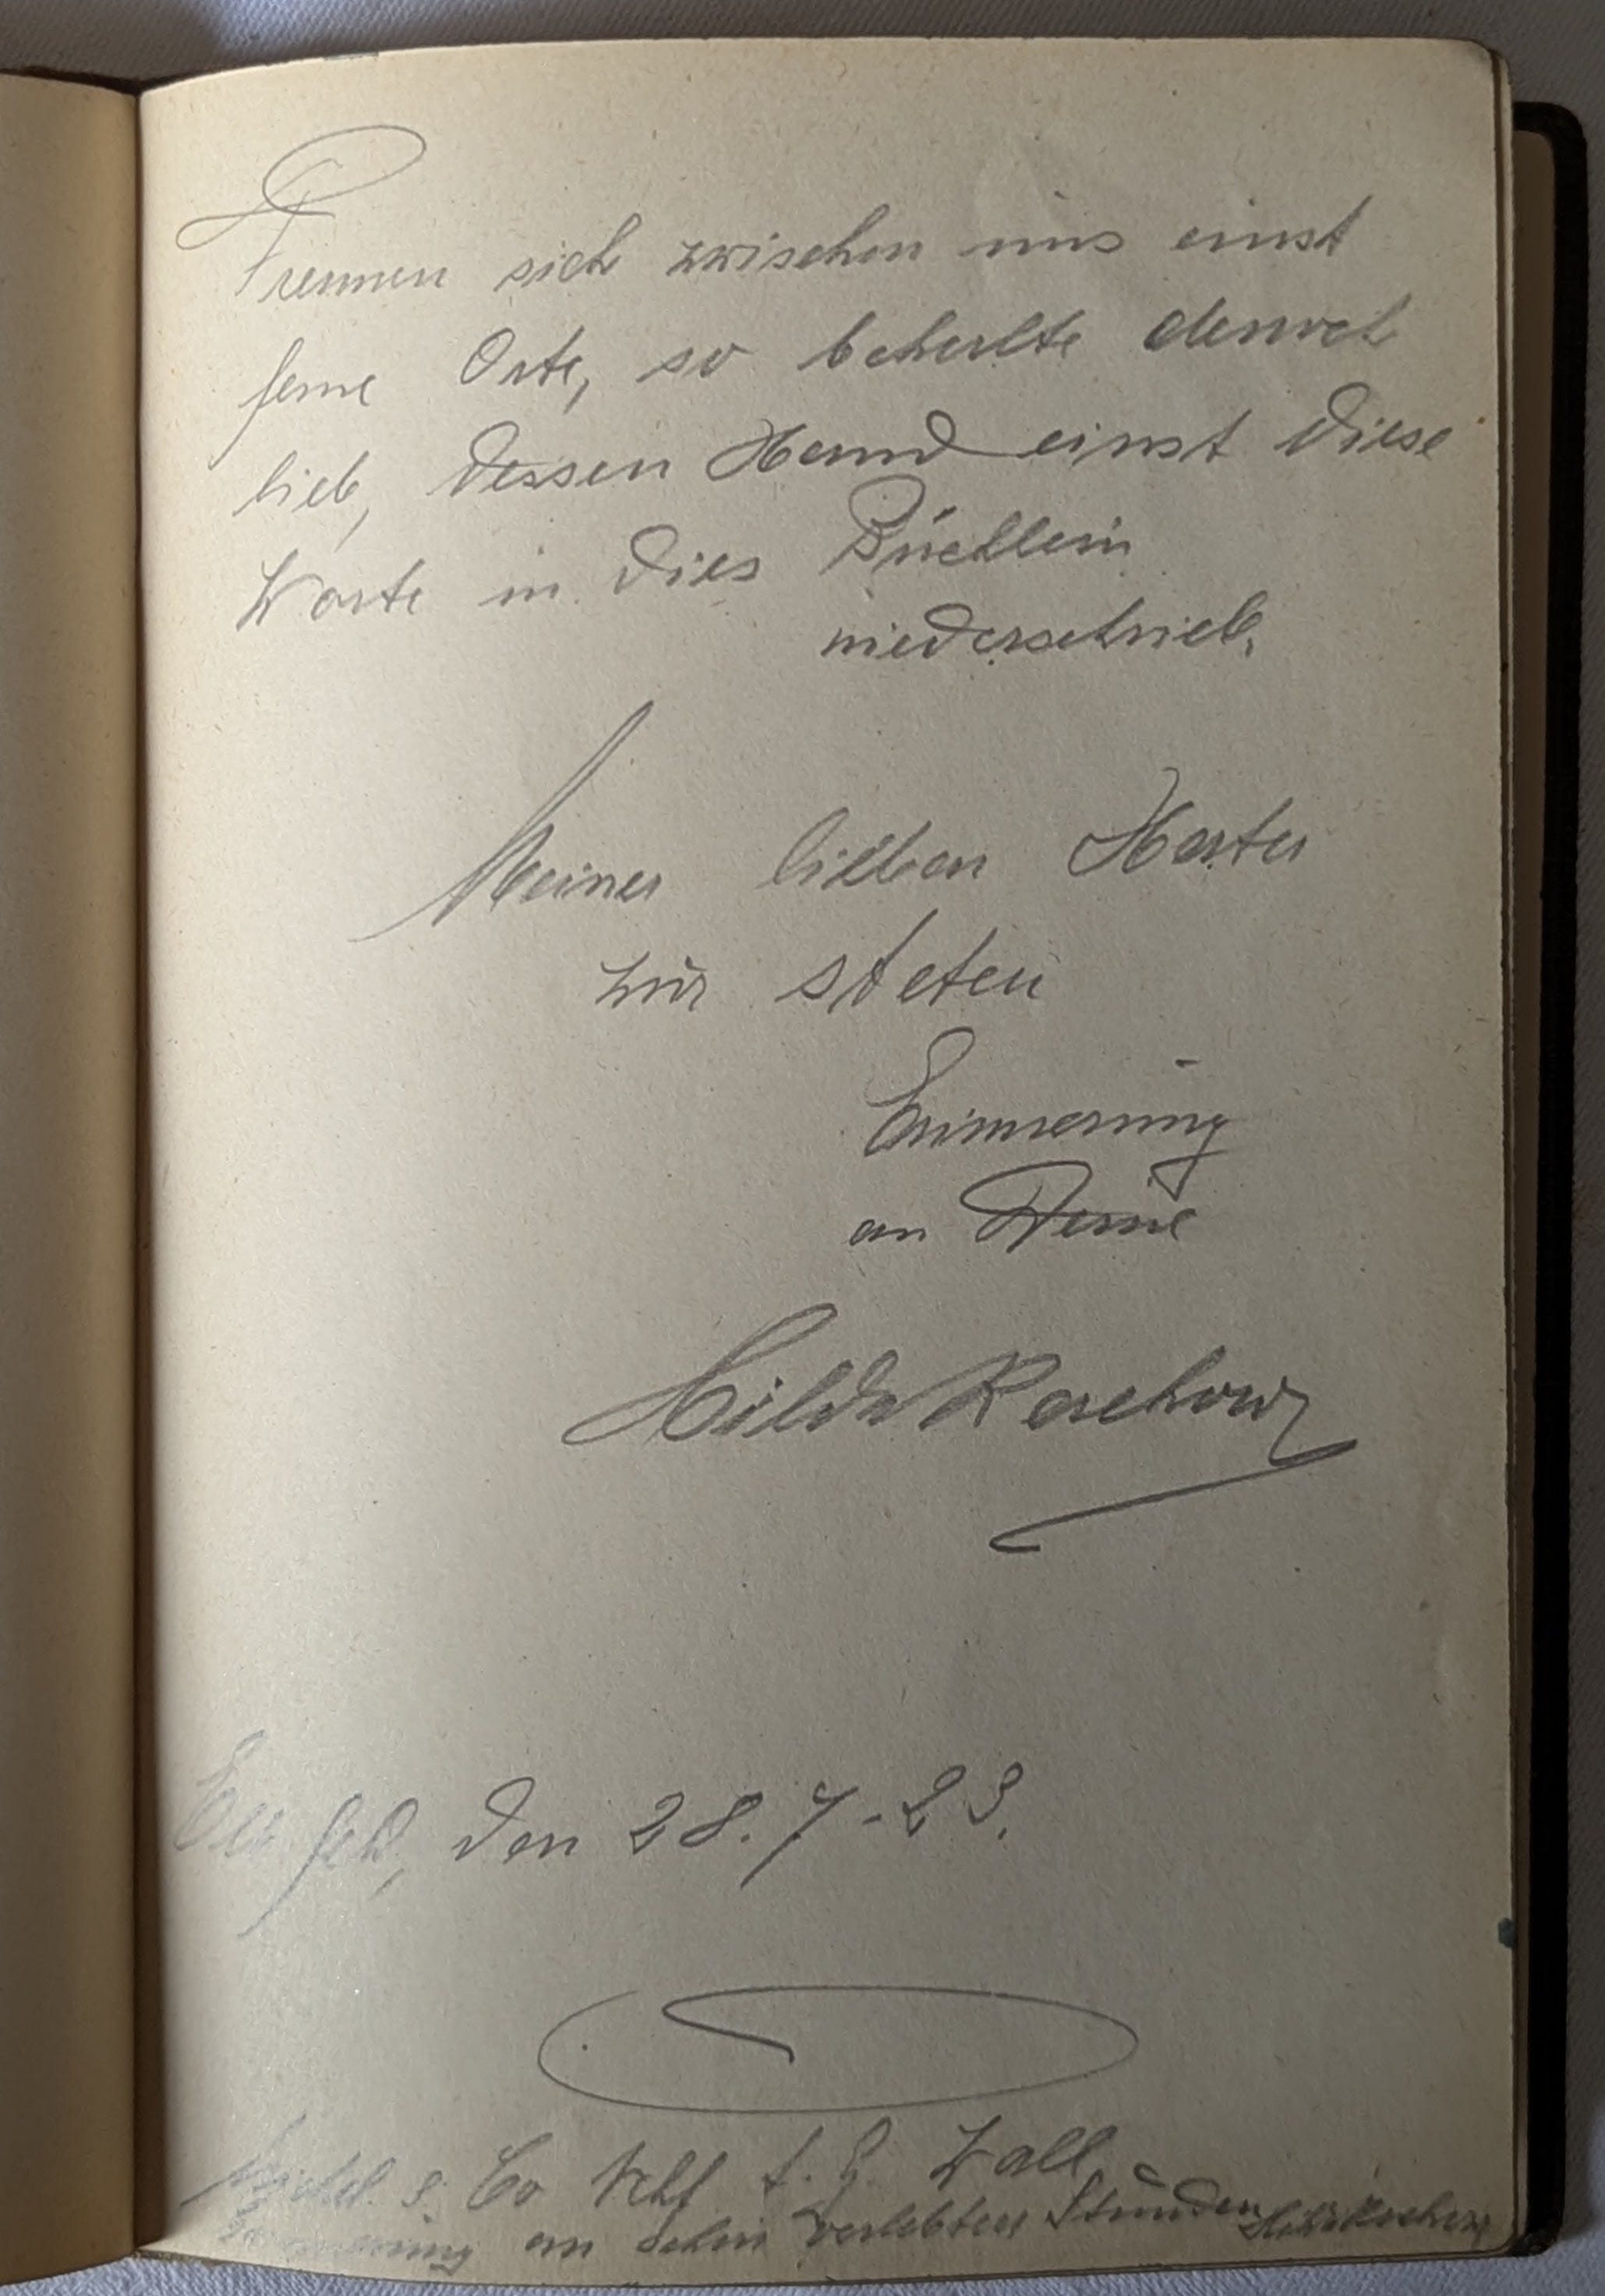 Trennen sich zwischen uns einst
ferne Orte, so behalte dennoch
lieb, dessen Hand einst diese
Worte in dies Büchlein
niederschrieb.
Meiner lieben Herta
zur steten
Erinnerung
an Deine
Hilda
den 28.7.23.
Co
Erinnerung an verlebten Stunden